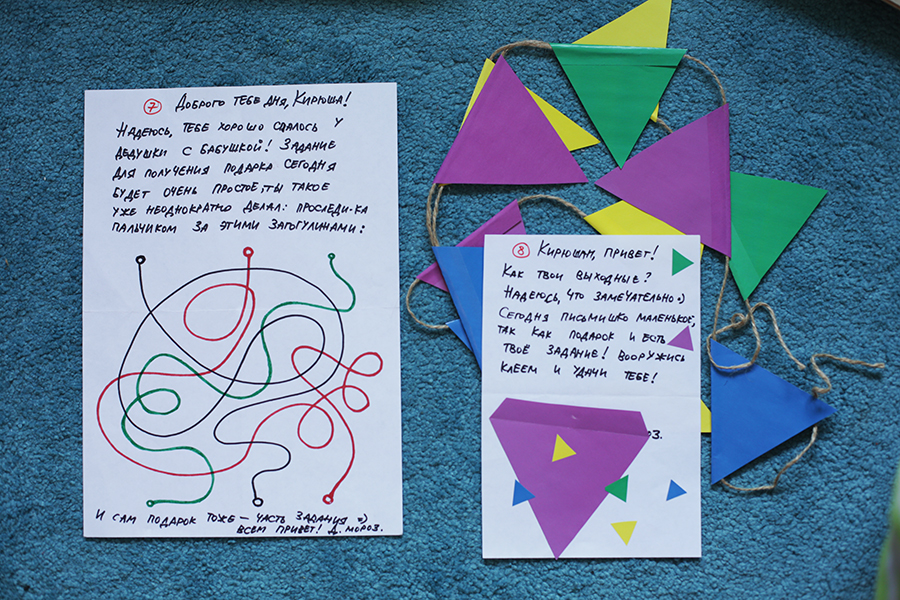 7 Доброго тебе дня, Кирюша!
Надеюсь, тебе хорошо спалось у
дедушки с бабушкой! Задание
для получения подарка сегодня
будет очень простое, ты такое
уже неоднократно делал: проследи-ка
пальчиком за этими загогулинами:
И сам подарок тоже – часть задания =)
Всем привет! Д. Мороз.
8 Кирюшам, привет!
Как твои выходные?
Надеюсь, что замечательно :)
Сегодня письмишко маленькое,
так как подарок и есть
твоё задание! Вооружись
клеем и удачи тебе!
оз.